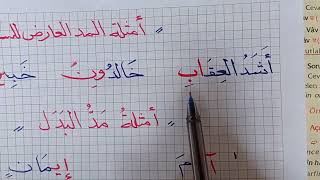 = أمثلة المد العارض للس
أَشَدُ العِقَابِ خَالدُونَ
= أمثلةُ مَدُّ البَدَل =
آ مَ إيمَان
Ceva
Vâv
Sor
Cev